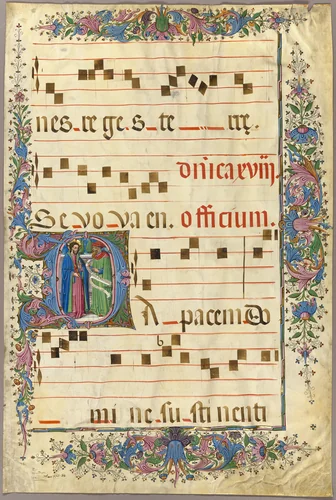 nes_re ge_s_te _ ... _ rre.
dn̄ica xviij.
Se vo va en. officium.
DA_pacem Do
_ mi_ne_su_sti nenti